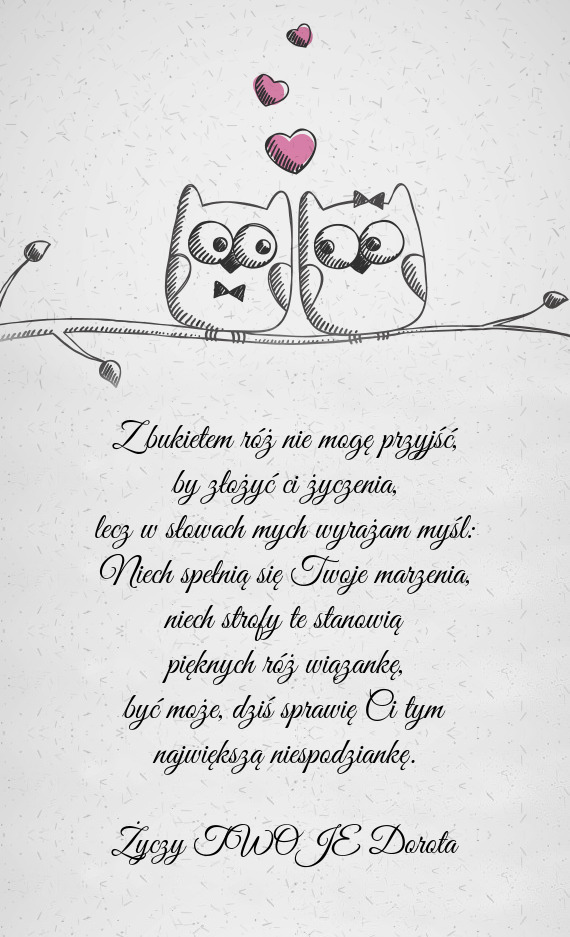 Zbukietem róż nie mogę przyjść,
by złożyć ci życzenia,
lecz w słowach mych wyrażam myśl:
Niech spełnią się Twoje marzenia,
niech strofy te stanowią
pięknych róż wiązankę,
być może, dziś sprawię Ci tym
największą niespodziankę.
Życzy TWOJE Dorota